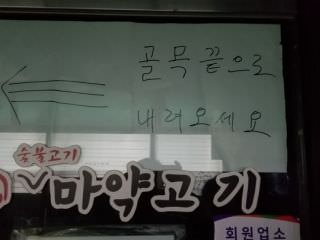 골목끝으로
내려오세요
숯불고기
마약고기
회원업소